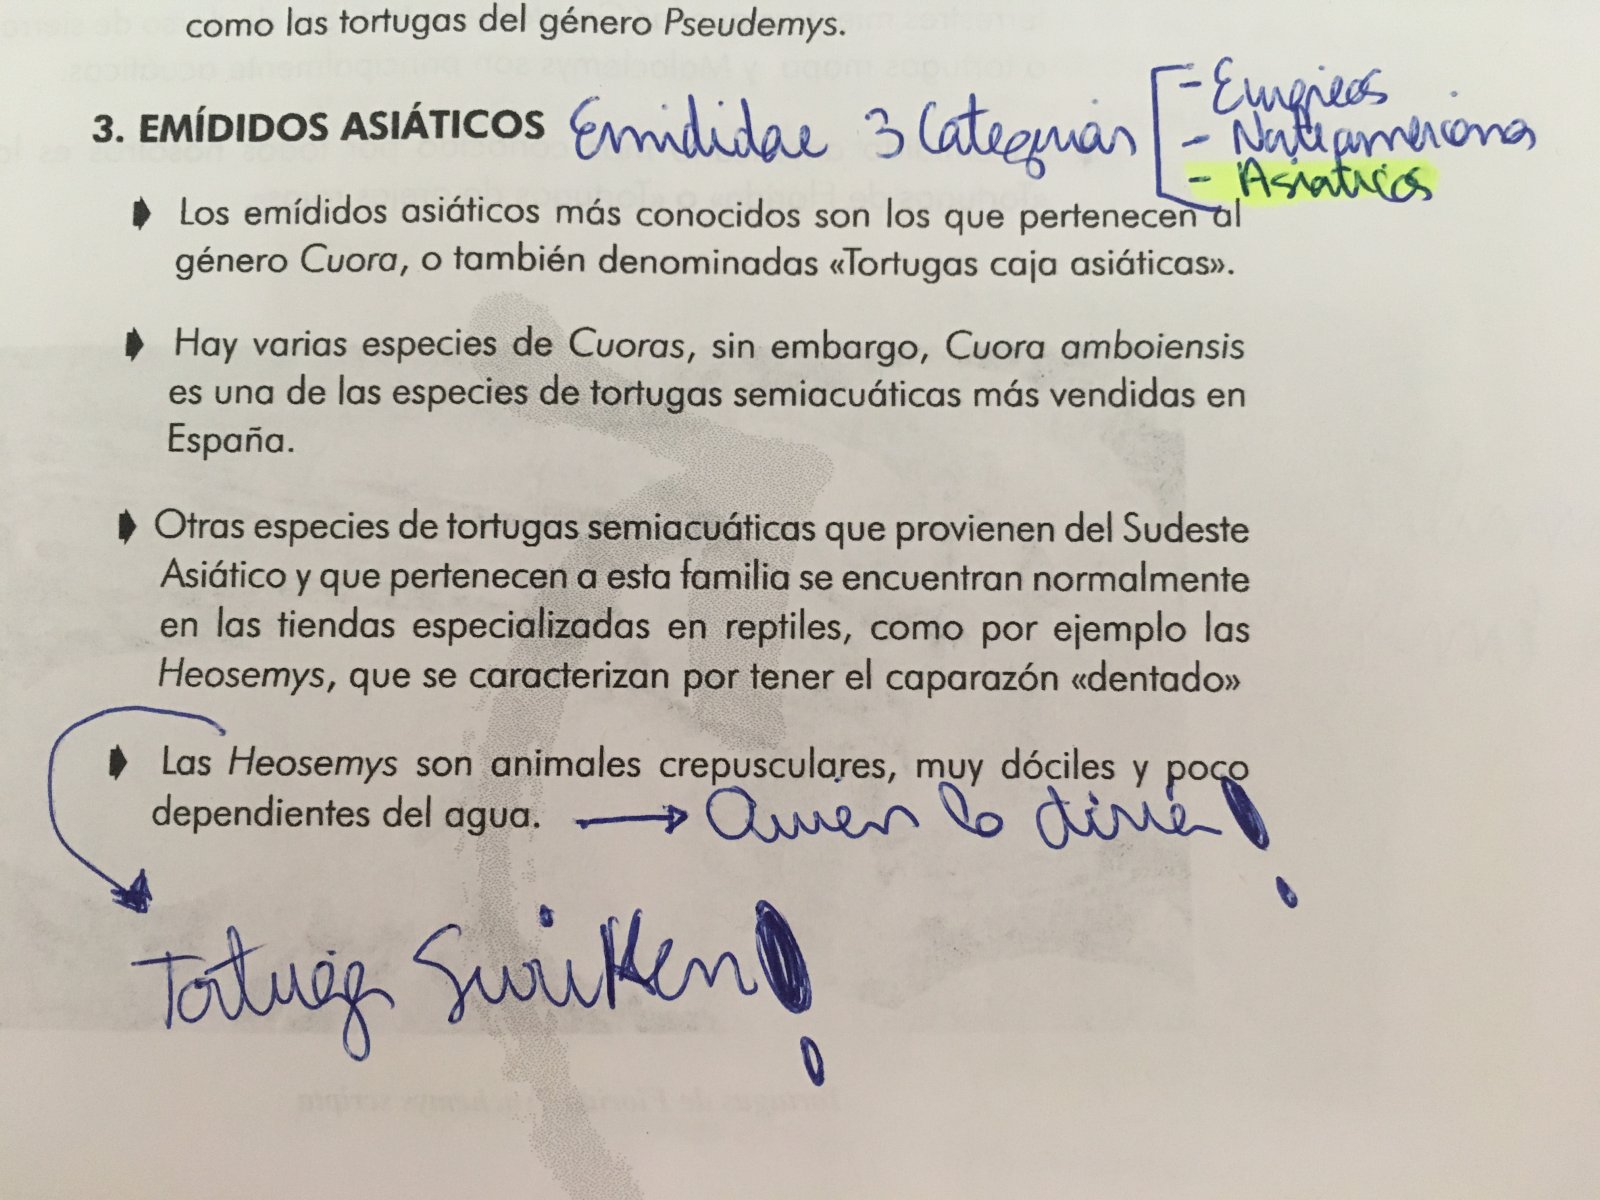 como las tortugas del género Pseudemys.
- Europeos
3. EMÍDIDOS ASIÁTICOS Emididae 3 Categorias - Norteamericanos
- Asiaticos
Los emídidos asiáticos más conocidos son los que pertenecen al
género Cuora, o también denominadas «Tortugas caja asiáticas».
Hay varias especies de Cuoras, sin embargo, Cuora amboiensis
es una de las especies de tortugas semiacuáticas más vendidas en
España.
Otras especies de tortugas semiacuáticas que provienen del Sudeste
Asiático y que pertenecen a esta familia se encuentran normalmente
en las tiendas especializadas en reptiles, como por ejemplo las
Heosemys, que se caracterizan por tener el caparazón «dentado»
Las Heosemys son animales crepusculares, muy dóciles y poco
dependientes del agua. → Quien lo diria!
Tortuga Suriken!